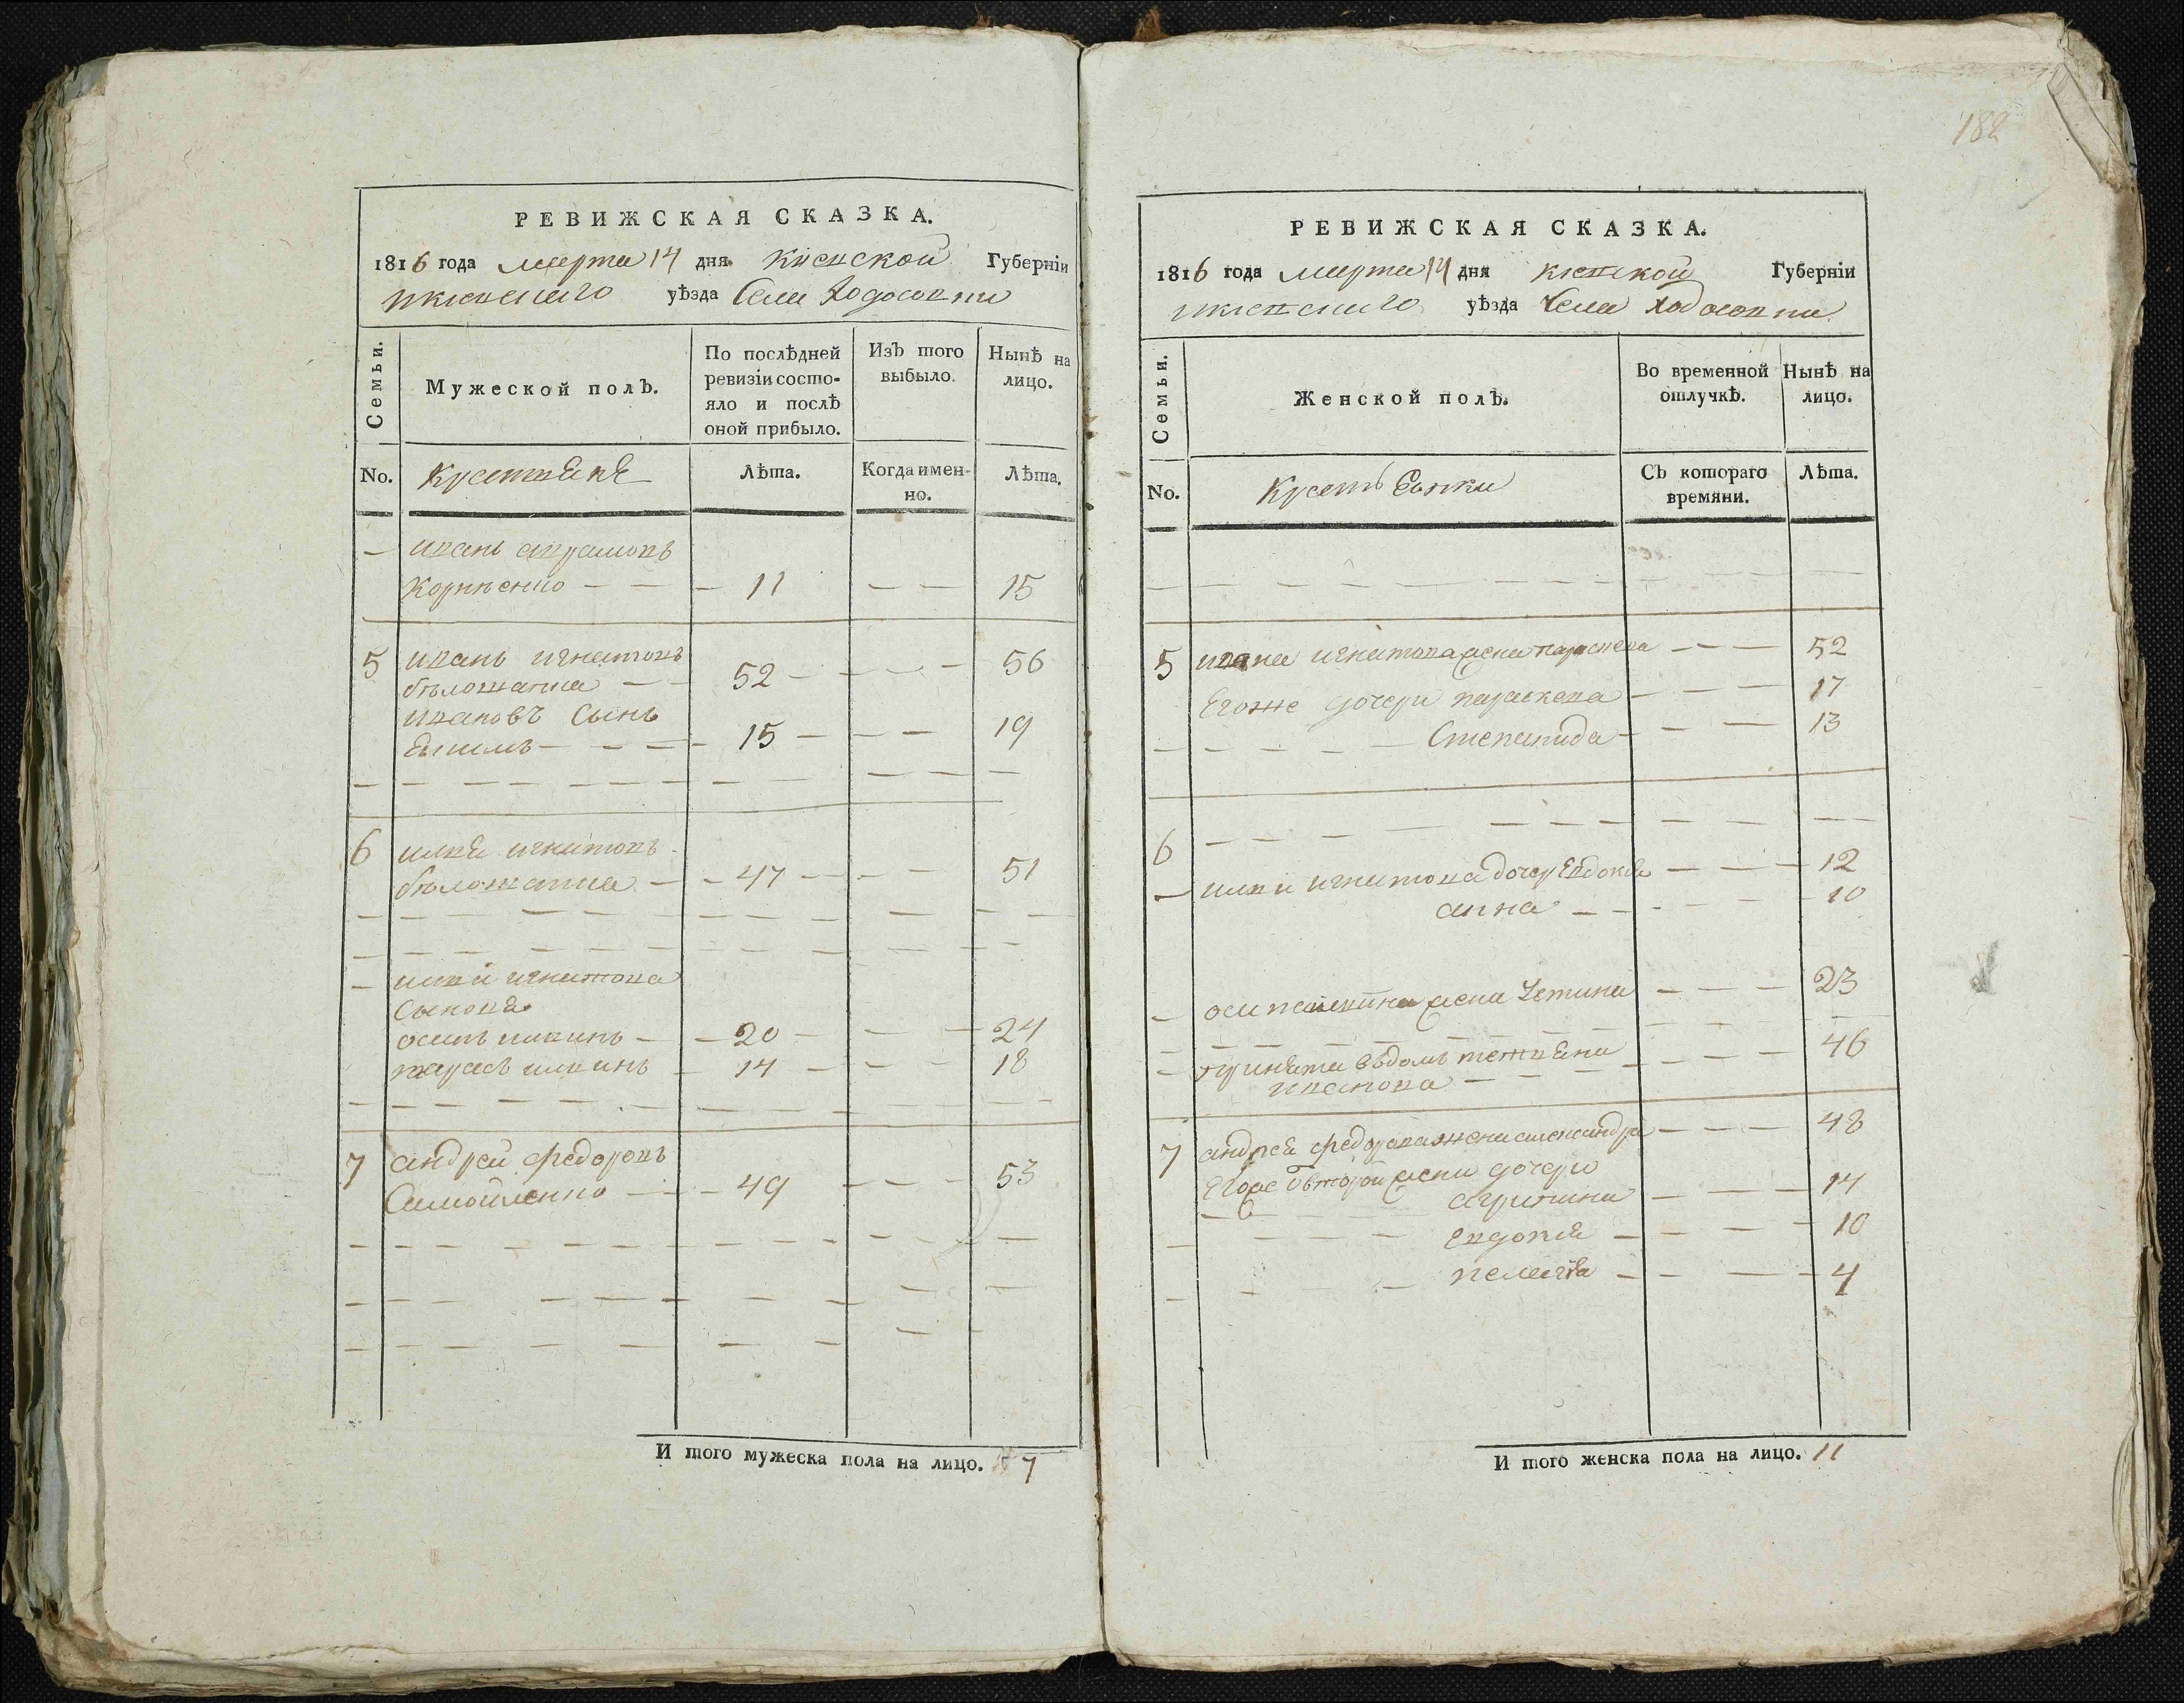 182
РЕВИЖСКАЯ СКАЗКА.
1816 года марта 14 дня Киевской Губерніи
икиевскаго уѣзда Села Ходосовки
Семьи.
Мужеской полЪ.
По послѣдней ревизіи состояло и послѣ оной прибыло.
ИзЪ того выбыло.
Нынѣ на лицо.
No.
Крестьяне
Лѣта.
Когда именно.
Лѣта.
— иванъ аврамовъ
Корнѣенко — — — 11 — — 15
5 иванъ игнатовъ
бѣложапка — — 52 — — — 56
ивановъ сынъ
— — — 15 — — — 19
6 илья игнатовъ
бѣложапка — — 47 — — — 51
— ильи игнатова
сыновья
осипъ ильинъ — — 20 — — — 24
тарасъ ильинъ — 14 — — — 18
7 андрей федоровъ
Самойленко — — 49 — — — 53
И того мужеска пола на лицо. 7
РЕВИЖСКАЯ СКАЗКА.
1816 года марта 14 дня киевской Губерніи
икиевскаго уѣзда Села Ходосовки
Семьи.
Женской полЪ.
Во временной отлучкѣ.
Нынѣ на лицо.
No.
Крестьянки
СЪ котораго времяни.
Лѣта.
5 ивана игнатова жена параскева — — — 52
Егоже дочери параскева — — — 17
— — — — Степанида — — — 13
6
— ильи игнатова дочери Евдокия — — — 12
анна — — — — 10
— осипа ильина жена Устина — — — 23
— принята въ домъ
иванова — — — — 46
7 андрея федорова жена александра — — — 48
Егоже от второй жены дочери
агрипина — — — 14
Евдокия — — — 10
пелагея — — — 4
И того женска пола на лицо. 11